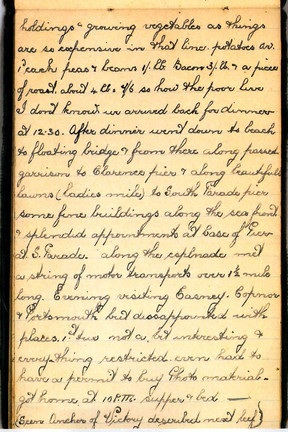 holdings & growing vegetables as things
are so expensive in that line. potatoes av.
1d each peas & beans 1/- lb. Bacon 3/- lb. & a piece
of roast about 4 lb = 7/6 so how the poor live
I dont know we arrived back for dinner
at 12.30. After dinner went down to beach
to floating bridge & from there along passed
garrison to Clarence pier & along beautiful
lawns (Ladies mile) to South Parade pier
some fine buildings along the sea front
& splendid appointments at base of Pier
at S. Parade. along the esplanade met
a string of motor transports over 1½ mile
long. Evening visiting Easney. Copnor
& Portsmouth but dissappointed with
places. not a bit interesting &
every-thing restricted. even had to
have a permit to buy Photo material-
got home at 10 P.M. supper & bed —
(Seen Anchor of Victory described next